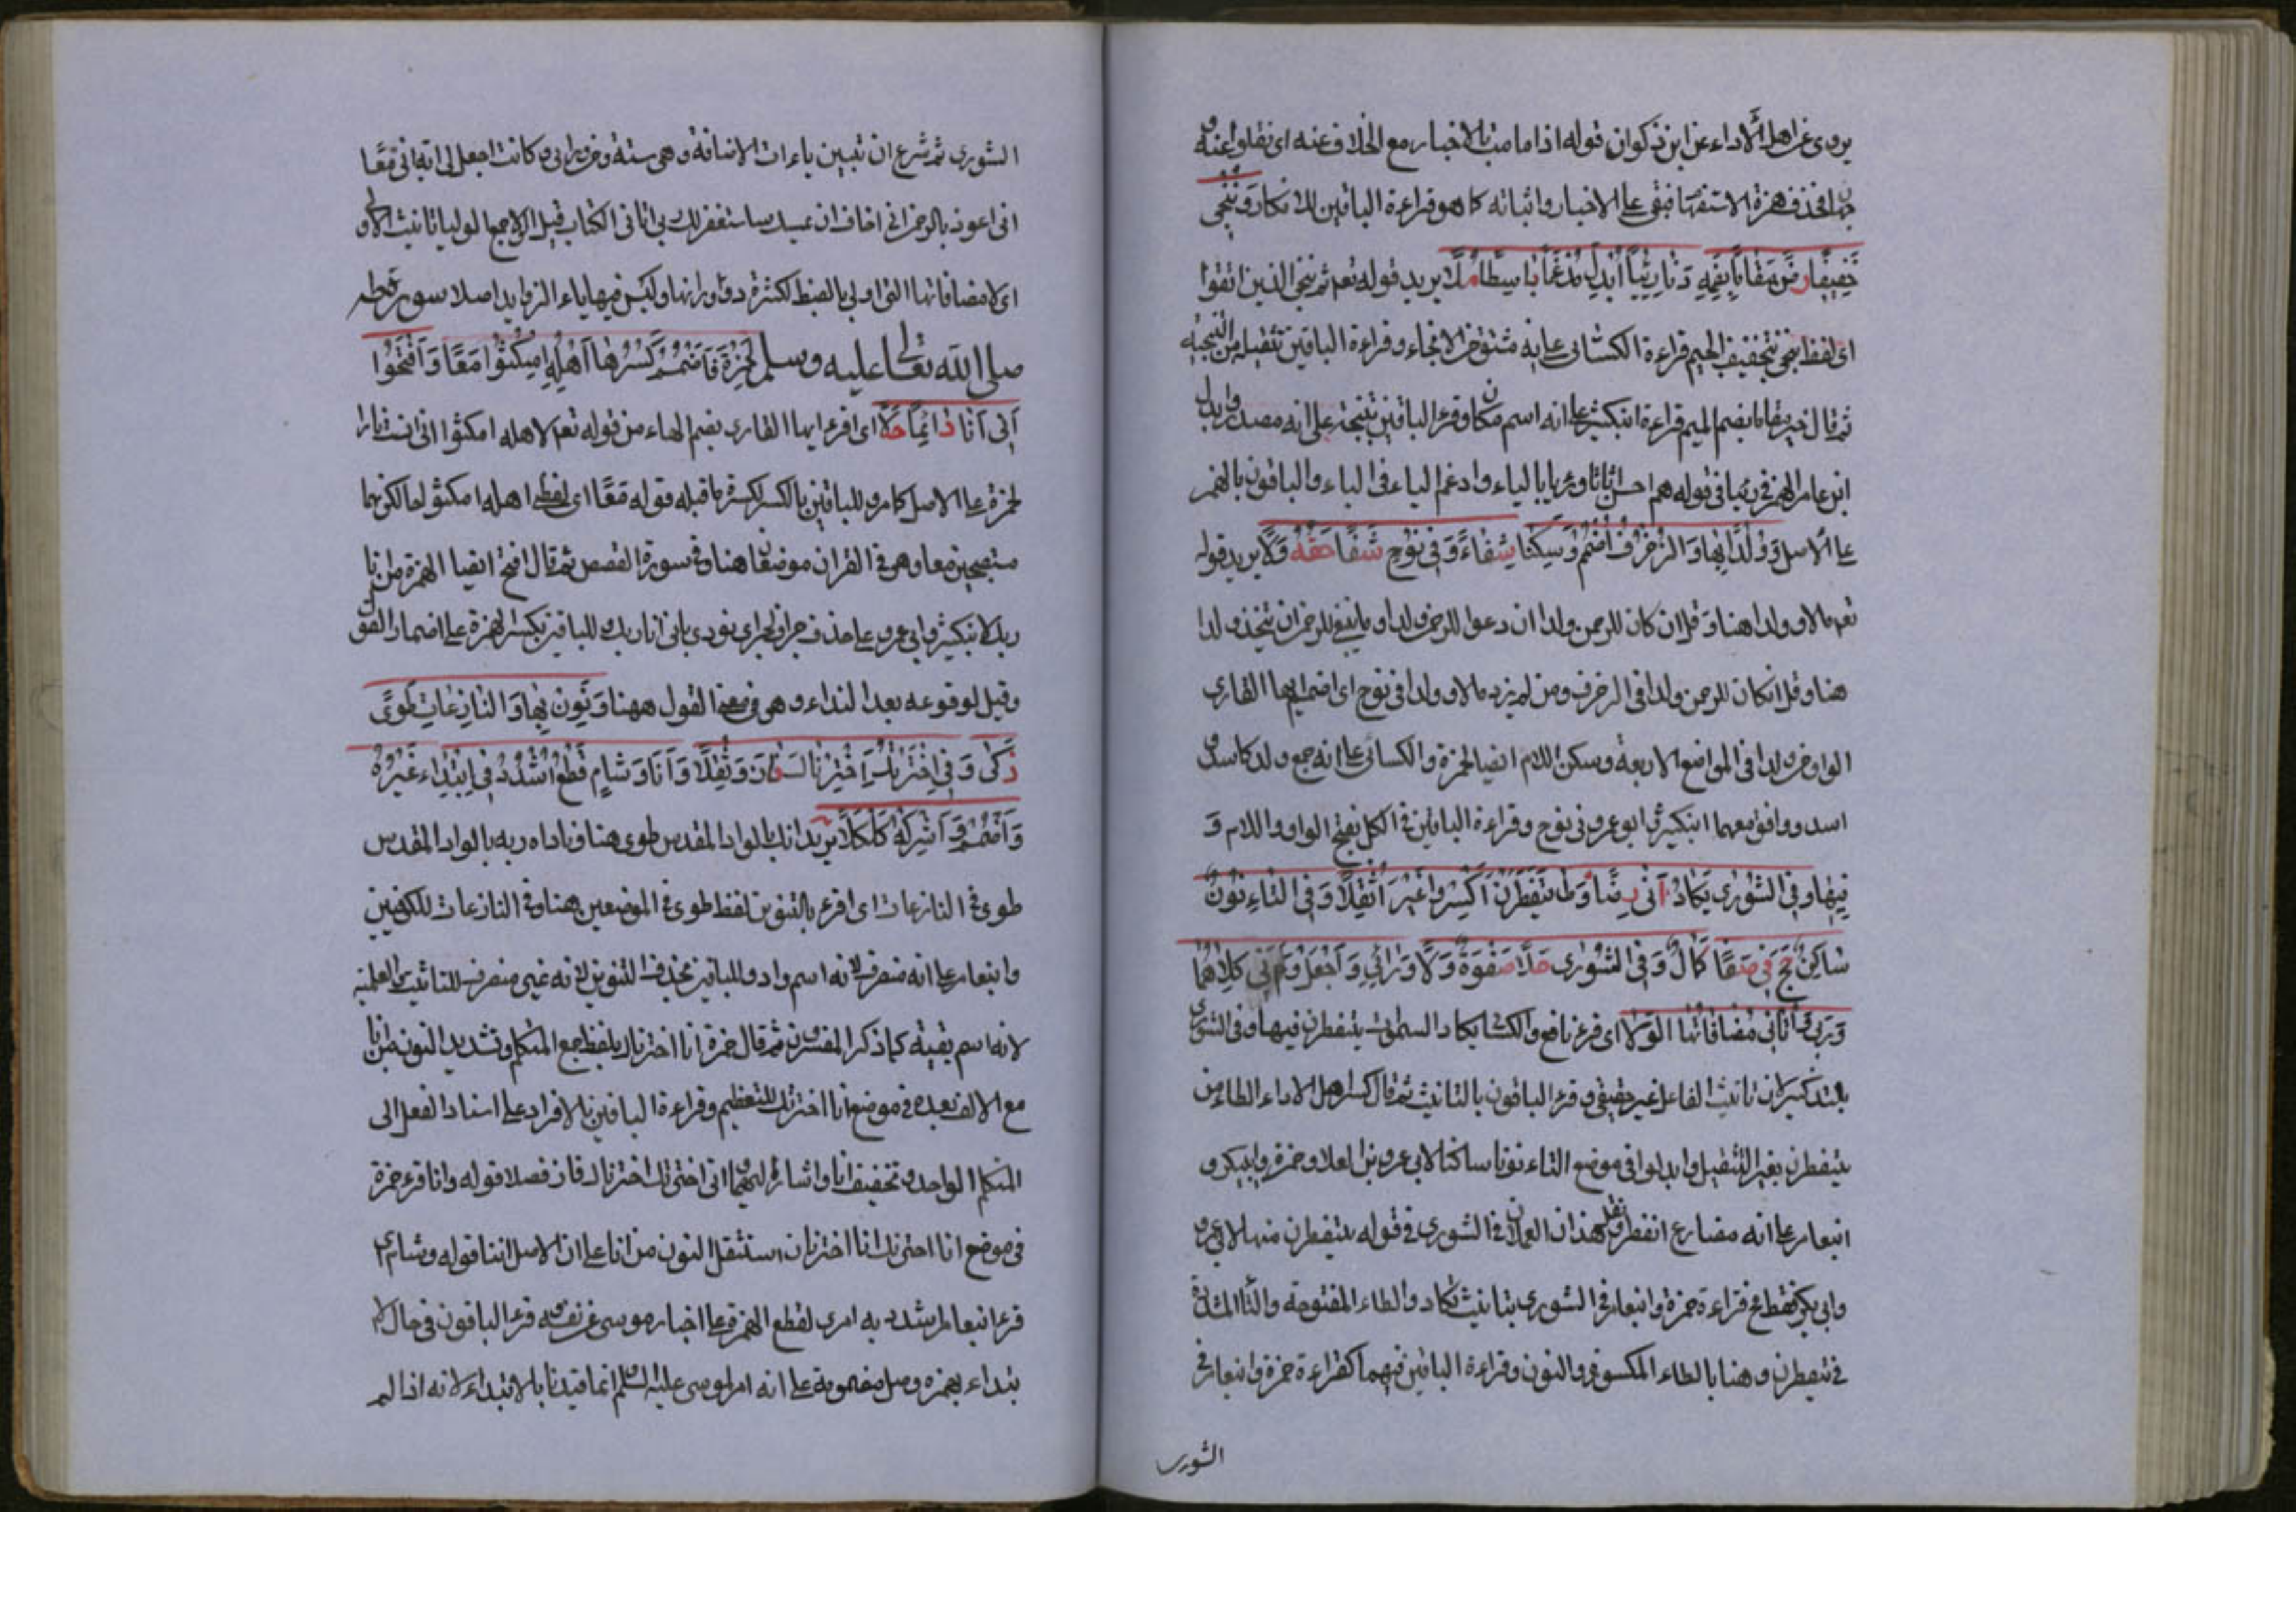 يروى عن اهل الأداء عن ابن ذكوان قوله اذا مامت بالاخبار مع الخلاف عنه اى نقلوا عنه
فحذف همزة الاستفهام فبقى على الاخبار واثباته كما هو قراءة الباقين للانكار وَنُنْجِى
خَفِيفًا رُضْ مَقَامًا بِضَمِّهِ دَنَا رِئْيًا اَبْدِلْ مُدْغِمًا بَاسِطًا مُلَا يريد قوله تعم ثم ننجى الذين اتقوا
اى لفظ ننجى بتخفيف الجيم قراءة الكسائى على انه مشتق من الانجاء وقراءة الباقين بتثقيله من التنجيه
ثم قال خير مقاما بضم الميم قراءة ابنكثير على انه اسم مكان وقرء الباقين بفتحه على انه مصدر وابدل
ابن عامر الهمز فى رئيا فى قوله هم احسن اثاثا ورئيا بالياء وادغم الياء فى الياء والباقون بالهمز
على الأصل وَوُلْدًا بِهَا وَالزُّخْرُفِ اضْمُمْ وَسَكِّنَا شِفَاءً وَفِى نُوحٍ شَفَا حَقُّهُ وَلَا يريد قوله
تعم مالا وولدا هنا وقل ان كان للرحمن ولدا ان دعوا للرحمن ولدا وما ينبغى للرحمن ان يتخذ ولدا
هنا وقل انكان للرحمن ولد فى الزخرف ومن لم يزده ماله وولده فى نوح اى اضم ايها القارى
الواو من ولدا فى المواضع الاربعة وسكن اللام ايضا لحمزة والكسائى على انه جمع ولد كاسد و
اسد ووافق معهما ابنكثير وابو عمرو فى نوح وقراءة الباقين فى الكل بفتح الواو واللام وَ
فِيهَا وَفِى الشُّورَى يَكَادُ اَتَى رِضًا وَطَا يَتَفَطَّرْنَ اكْسِرُوا غَيْرَ اَثْقَلَا وَفِى التَّاءِ نُونٌ
سَاكِنٌ حَجَّ فِى صَفَا كَمَالٍ وَفِى الشُّورَى حَلَا صَفْوُهُ وَلَا وَرَائِى وَاجْعَلْ لِى وَاِنِّى كِلَاهُمَا
وَرَبِّى وَآتَانِى مُضَافَاتُهَا الْوُلَا اى قرء نافع والكسائى يكاد السموات يتفطرن فيها وفى الشورى
بالتذكير لان تانيث الفاعل غير حقيقى وقرء الباقون بالتانيث ثم قال اكسر اهل الاداء الطاء من
يتفطرن بغير التثقيل وابدلوا فى موضع التاء نونا ساكنا لابى عمرو بن العلا وحمزة وابيبكر و
ابنعامر على انه مضارع انفطر ونقل هذان العملان فى الشورى فى قوله يتفطرن منها لابى عمرو
وابى بكر فقط فى قراءة حمزة وابنعامر فى الشورى بتانيث تكاد والطاء المفتوحة والتاء المشددة
فى يتفطرن وهنا بالطاء المكسورة والنون وقراءة الباقين فيهما كقراءة حمزة وابنعامر فى
الشورى
الشورى ثم شرع ان تبيين ياءات الاضافة وهى ستة من ورائى وكانت اجعل لى آية انى معًا
انى اعوذ بالرحمن انى اخاف ان يمسك ساستغفر لك ربى اتانى الكتاب
اى لا مضافاتها التى اولى بالضبط لكثرة دورانها وليس فيها ياء الزوايد اصلا سورة طه
صلى الله تعالى عليه وسلم لِحَمْزَةَ فَاضْمُمْ كَسْرَ هَا اَهْلِهِ امْكُثُوا مَعًا وَافْتَحُوا
اَنِّى اَنَا دَائِمًا حُلَا اى اقرء ايها القارى بضم الهاء من قوله تعم لاهله امكثوا انى انست نارا
لحمزة على الاصل كما مر وللباقين بالكسر لكسرة ما قبله قوله مَعًا اى لفظى اهله امكثوا حالكونهما
مصطحبين معا وهو فى القران موضعان هنا وفى سورة القصص ثم قال افتح ايضا الهمزة من انى انا
ربك لابنكثير وابى عمرو على حذف حرف الجر اى نودى بانى انا ربك وللباقين بكسر الهمزة على اضمار القول
وقيل لوقوعه بعد النداء وهى فى معنى القول ههنا وَنَوِّنْ بِهَا وَالنَّازِعَاتِ طُوًى
ذَكَى وَفِى اخْتَرْتُكَ اخْتَرْنَاكَ فَازَ وَثَقَّلَا وَاَنَا وَشَامٍ قَطْعُ اشْدُدْ فِى ابْتِدَاءِ غَيْرِهِ
وَاضْمُمْ وَاَشْرِكْهُ كَلْكَلَا يريد انك بالواد المقدس طوى هنا وناداه ربه بالواد المقدس
طوى فى النازعات اى اقرء بالتنوين لفظ طوى فى الموضعين هنا وفى النازعات للكوفيين
وابنعامر على انه منصرف لانه اسم واد وللباقين بحذف التنوين لانه غير منصرف للتانيث والعلمية
لانه اسم بقعة كما ذكر المفسرون ثم قال حمزة انا اخترناك بلفظ جمع المتكلم وتشديد النون من انا
مع الالف بعده فى موضع انا اخترتك للتعظيم وقراءة الباقين بالافراد على اسناد الفعل الى
المتكلم الواحد وتخفيف انا واشار اليهما انى اخترتك اخترناك فاز فصلا قوله وانا قرء حمزة
فى موضع انا اخترتك انا اخترناك استثقل النون من انا على ان الاصل اننا قوله وشام اى
قرء ابنعامر اشدد به ازرى لقطع الهمزة على اخبار موسى عن نفسه قرء الباقون فى حال الا
بتداء بهمزة وصل مضمومة على انه امر لموسى عليه السلم انما قيدنا بالابتداء لانه اذا لم